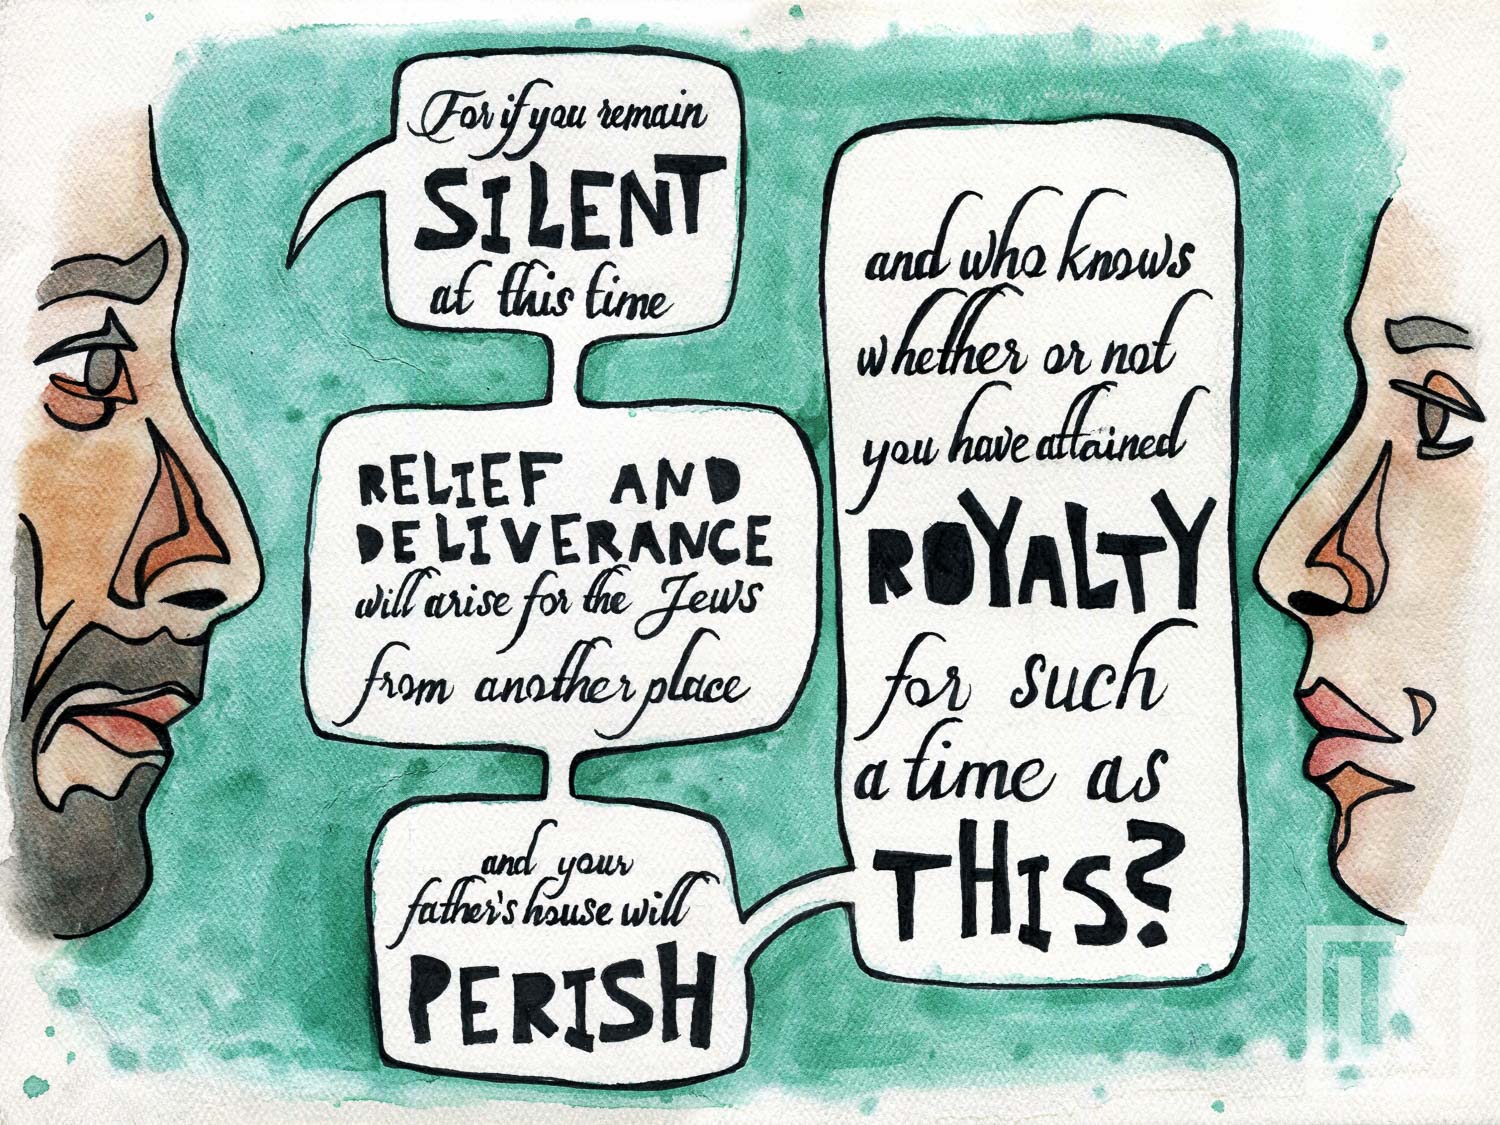 For if you remain
SILENT
at this time
RELIEF AND
DELIVERANCE
will arise for the Jews
from another place
and your
father's house will
PERISH
and who knows
whether or not
you have attained
ROYALTY
for such
a time as
THIS?